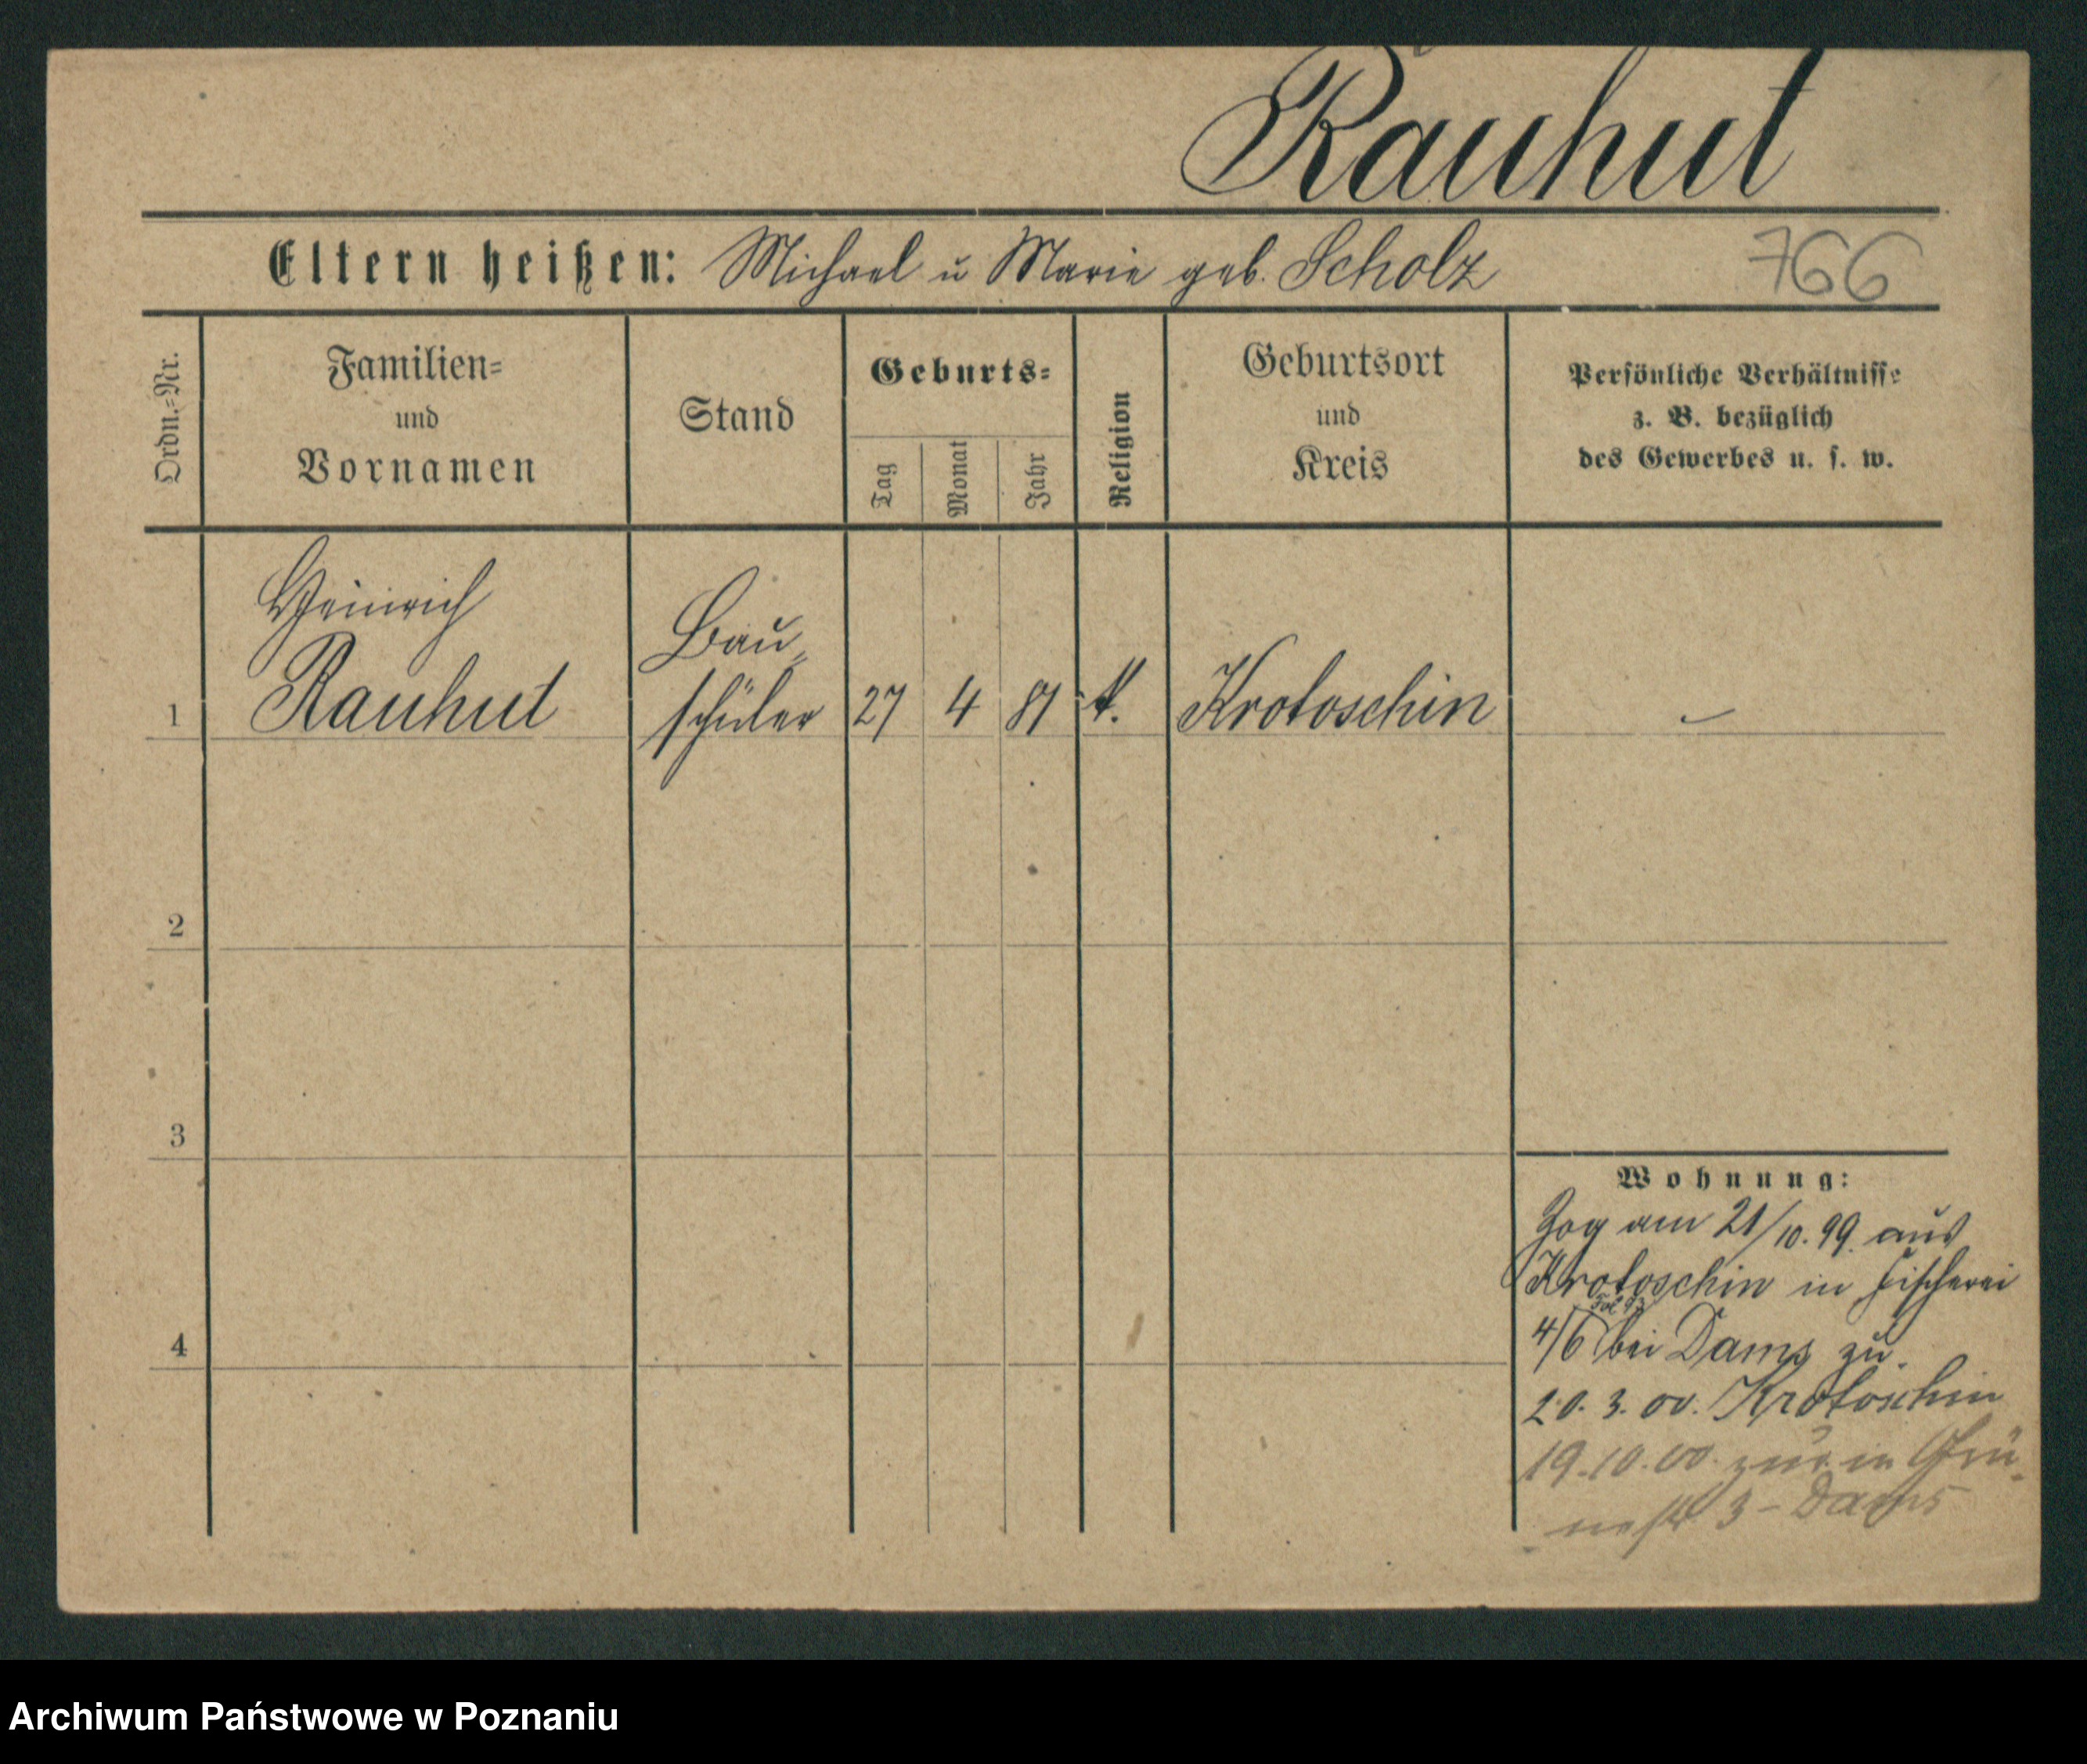 Rauhut
Eltern heißen: Michael u Marie geb. Scholz 766
Ordn.-Nr.
Familien-
und
Vornamen
Stand
Geburts-
Tag
Monat
Jahr
Religion
Geburtsort
und
Kreis
Persönliche Verhältnisse
z. B. bezüglich
des Gewerbes u. s. w.
Heinrich
Bau-
1 Rauhut schüler 27 4 81 k. Krotoschin –
2
3
4
Wohnung:
Zog am 21/10. 99. aus
Krotoschin in Fischerei
4/6 bei Dams zu.
20. 3. 00. Krotoschin
19.10.00. in Grü-
nestr 3 - Dams
Archiwum Państwowe w Poznaniu